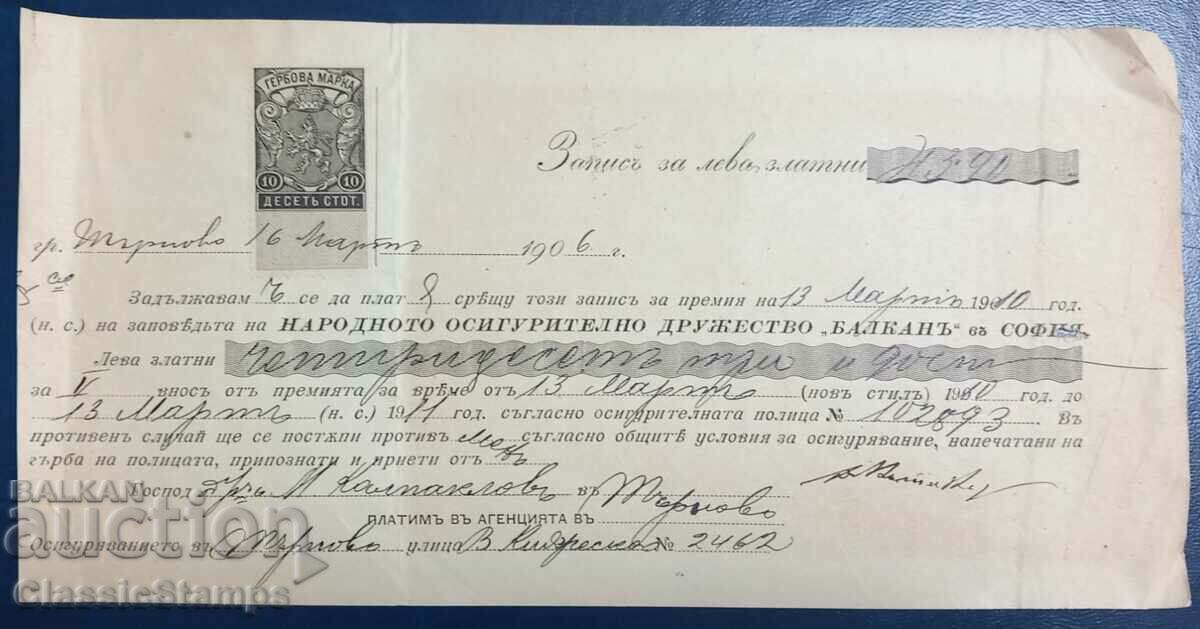 ГЕРБОВА МАРКА
10 10
ДЕСЕТЬ СТОТ.
Записъ за лева златни
гр. Търново 16 Мартъ 1906 г.
Задължавам се да плат срѣщу този записъ за премия на 13 Мартъ 1910 год.
(н. с.) на заповѣдьта на НАРОДНОТО ОСИГУРИТЕЛНО ДРУЖЕСТВО „БАЛКАНЪ“ въ СОФИЯ
Лева златни четиридесетъ три и
за V вносъ отъ премията за врѣме отъ 13 Мартъ (новъ стилъ) 1910 год. до
13 Мартъ (н. с.) 1911 год. съгласно осигурителната полица № Въ
противенъ случай ще се постѫпи противъ съгласно общитѣ условия за осигурявание, напечатани на
гърба на полицата, припознати и приети отъ
Господ М Калпакловъ въ Търново
ПЛАТИМЪ ВЪ АГЕНЦИЯТА ВЪ
Осигуряванието въ Търново улица № 2462
BALKAN
auction
ClassicStamps